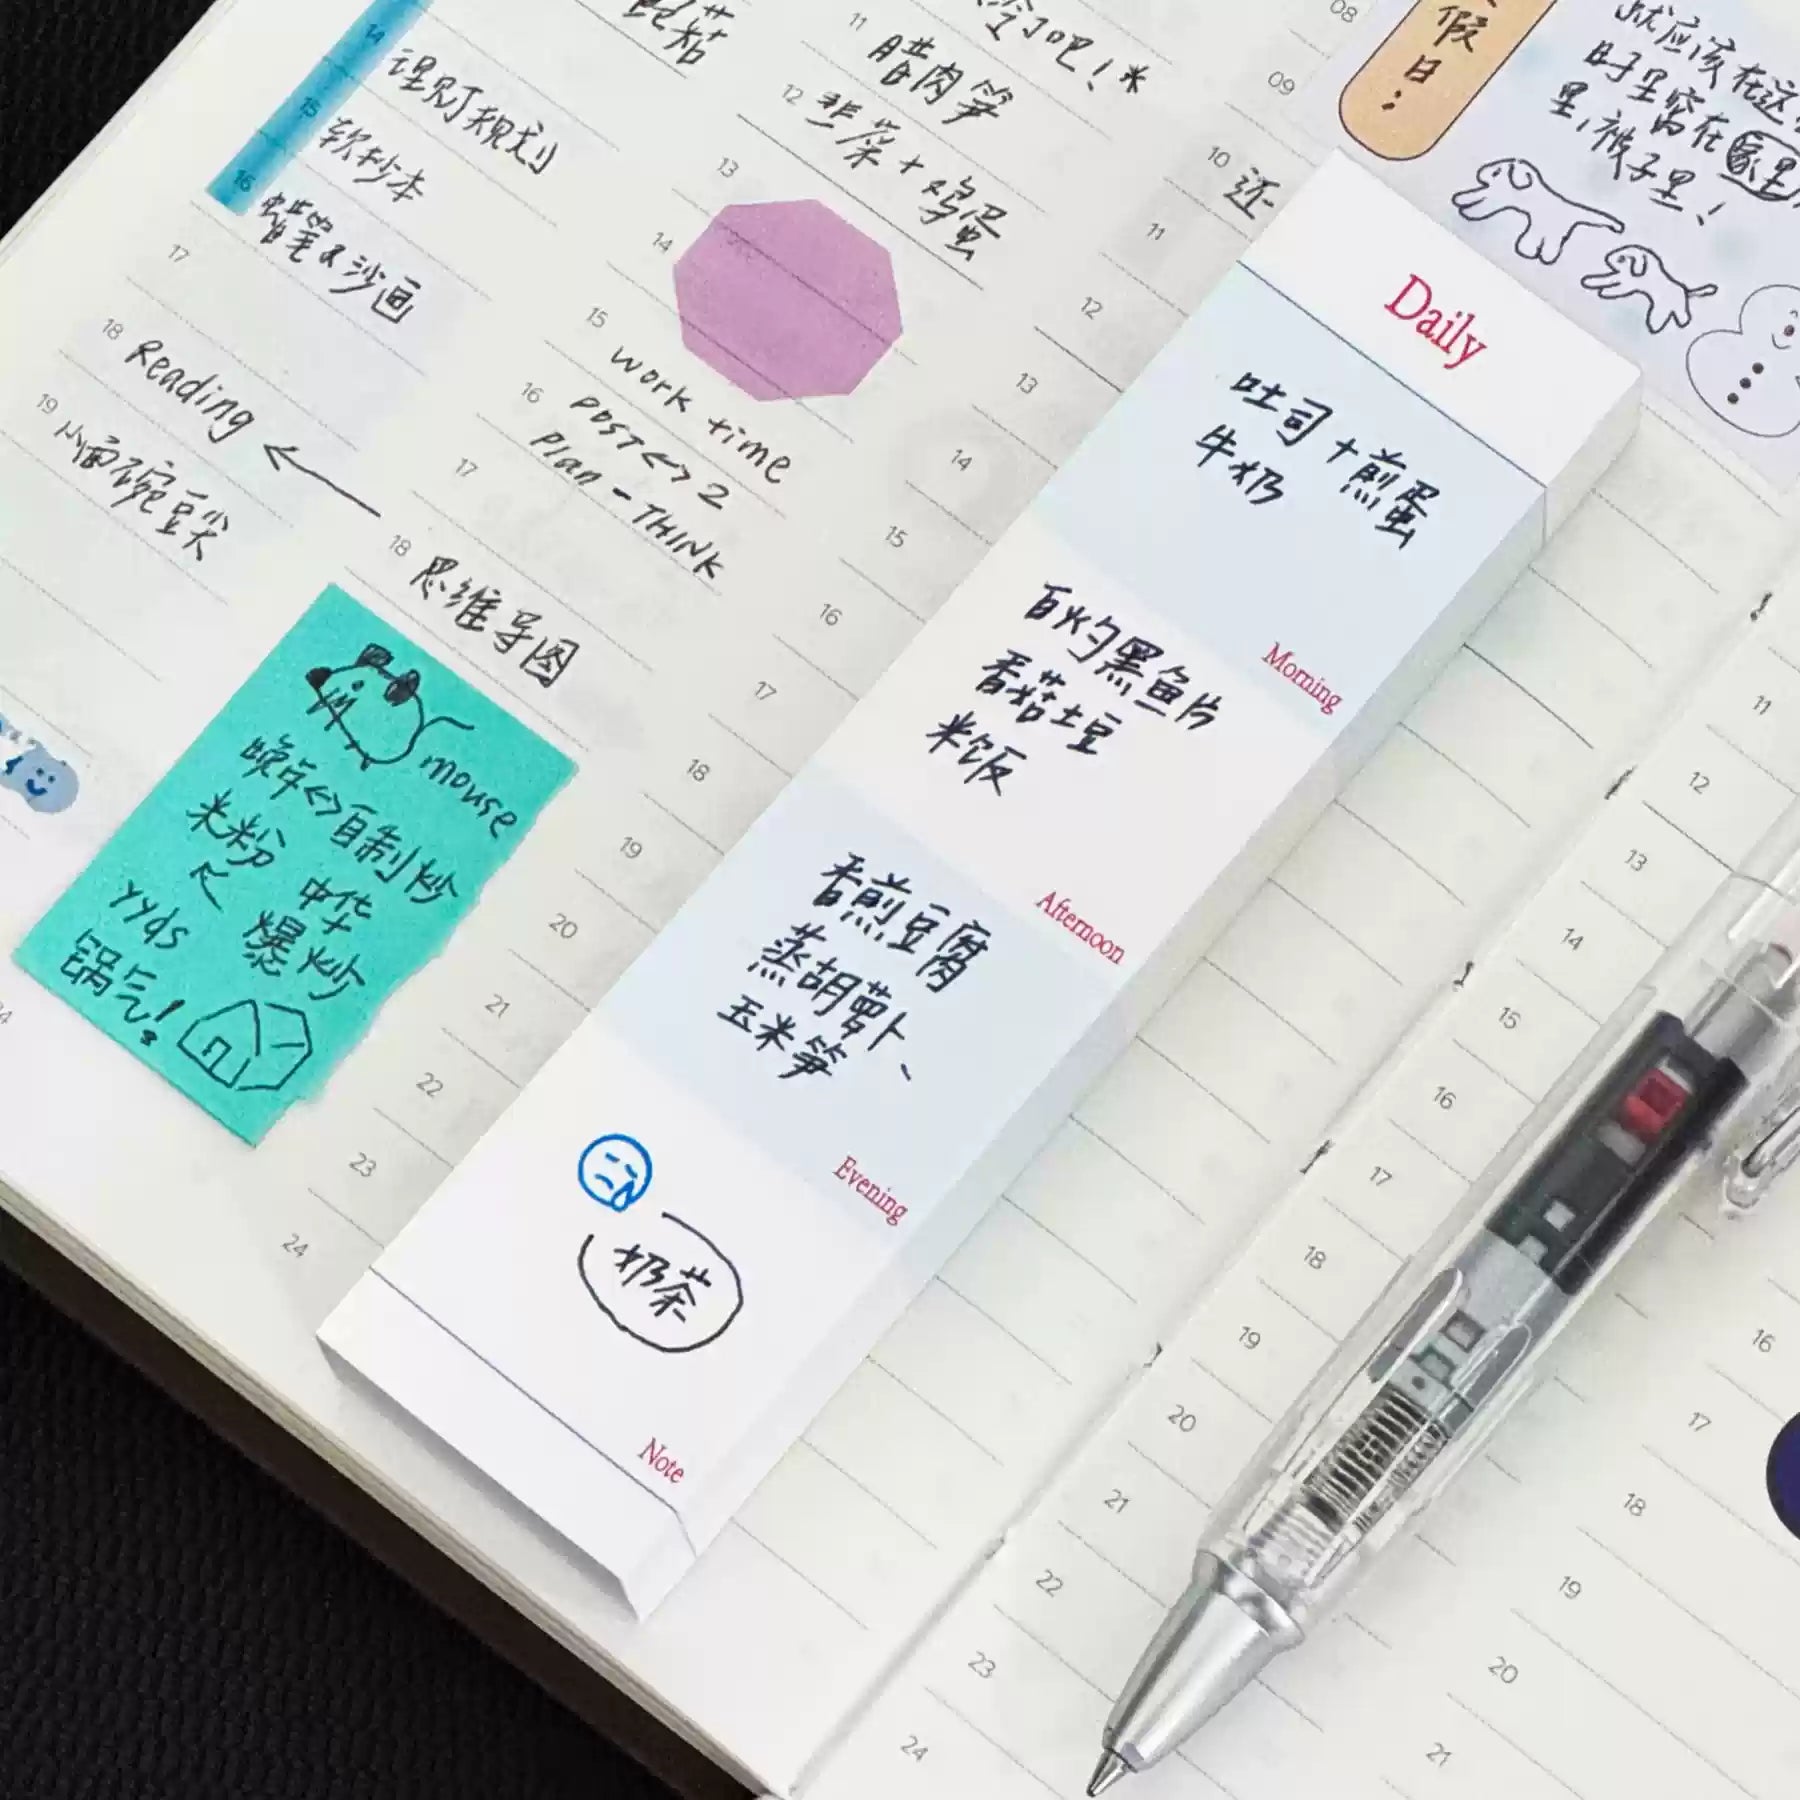 14
理财规划
15
软抄本
16
蜡笔&沙画
17
18
Reading
19
小面不碗豆尖
mouse
晚午<->自制炒
米粉
中华
爆炒
yyds
锅气!
24
11
腊肉笋
12
韭菜+鸡蛋
13
14
15
work time
16
POST<->2
Plan-THINK
17
18
思维导图
冷了吧!*
08
09
10
还
11
12
13
14
15
16
17
18
19
20
21
22
23
24
假日:
就应该在这
时里窝在家里
里,被子里!
Daily
吐司+煎蛋
牛奶
Morning
白灼黑鱼片
番茄土豆
米饭
Afternoon
香煎豆腐
蒸胡萝卜、
玉米笋
Evening
奶茶
Note
11
12
13
14
15
16
17
18
19
20
21
22
23
24
16
17
18
19
20
21